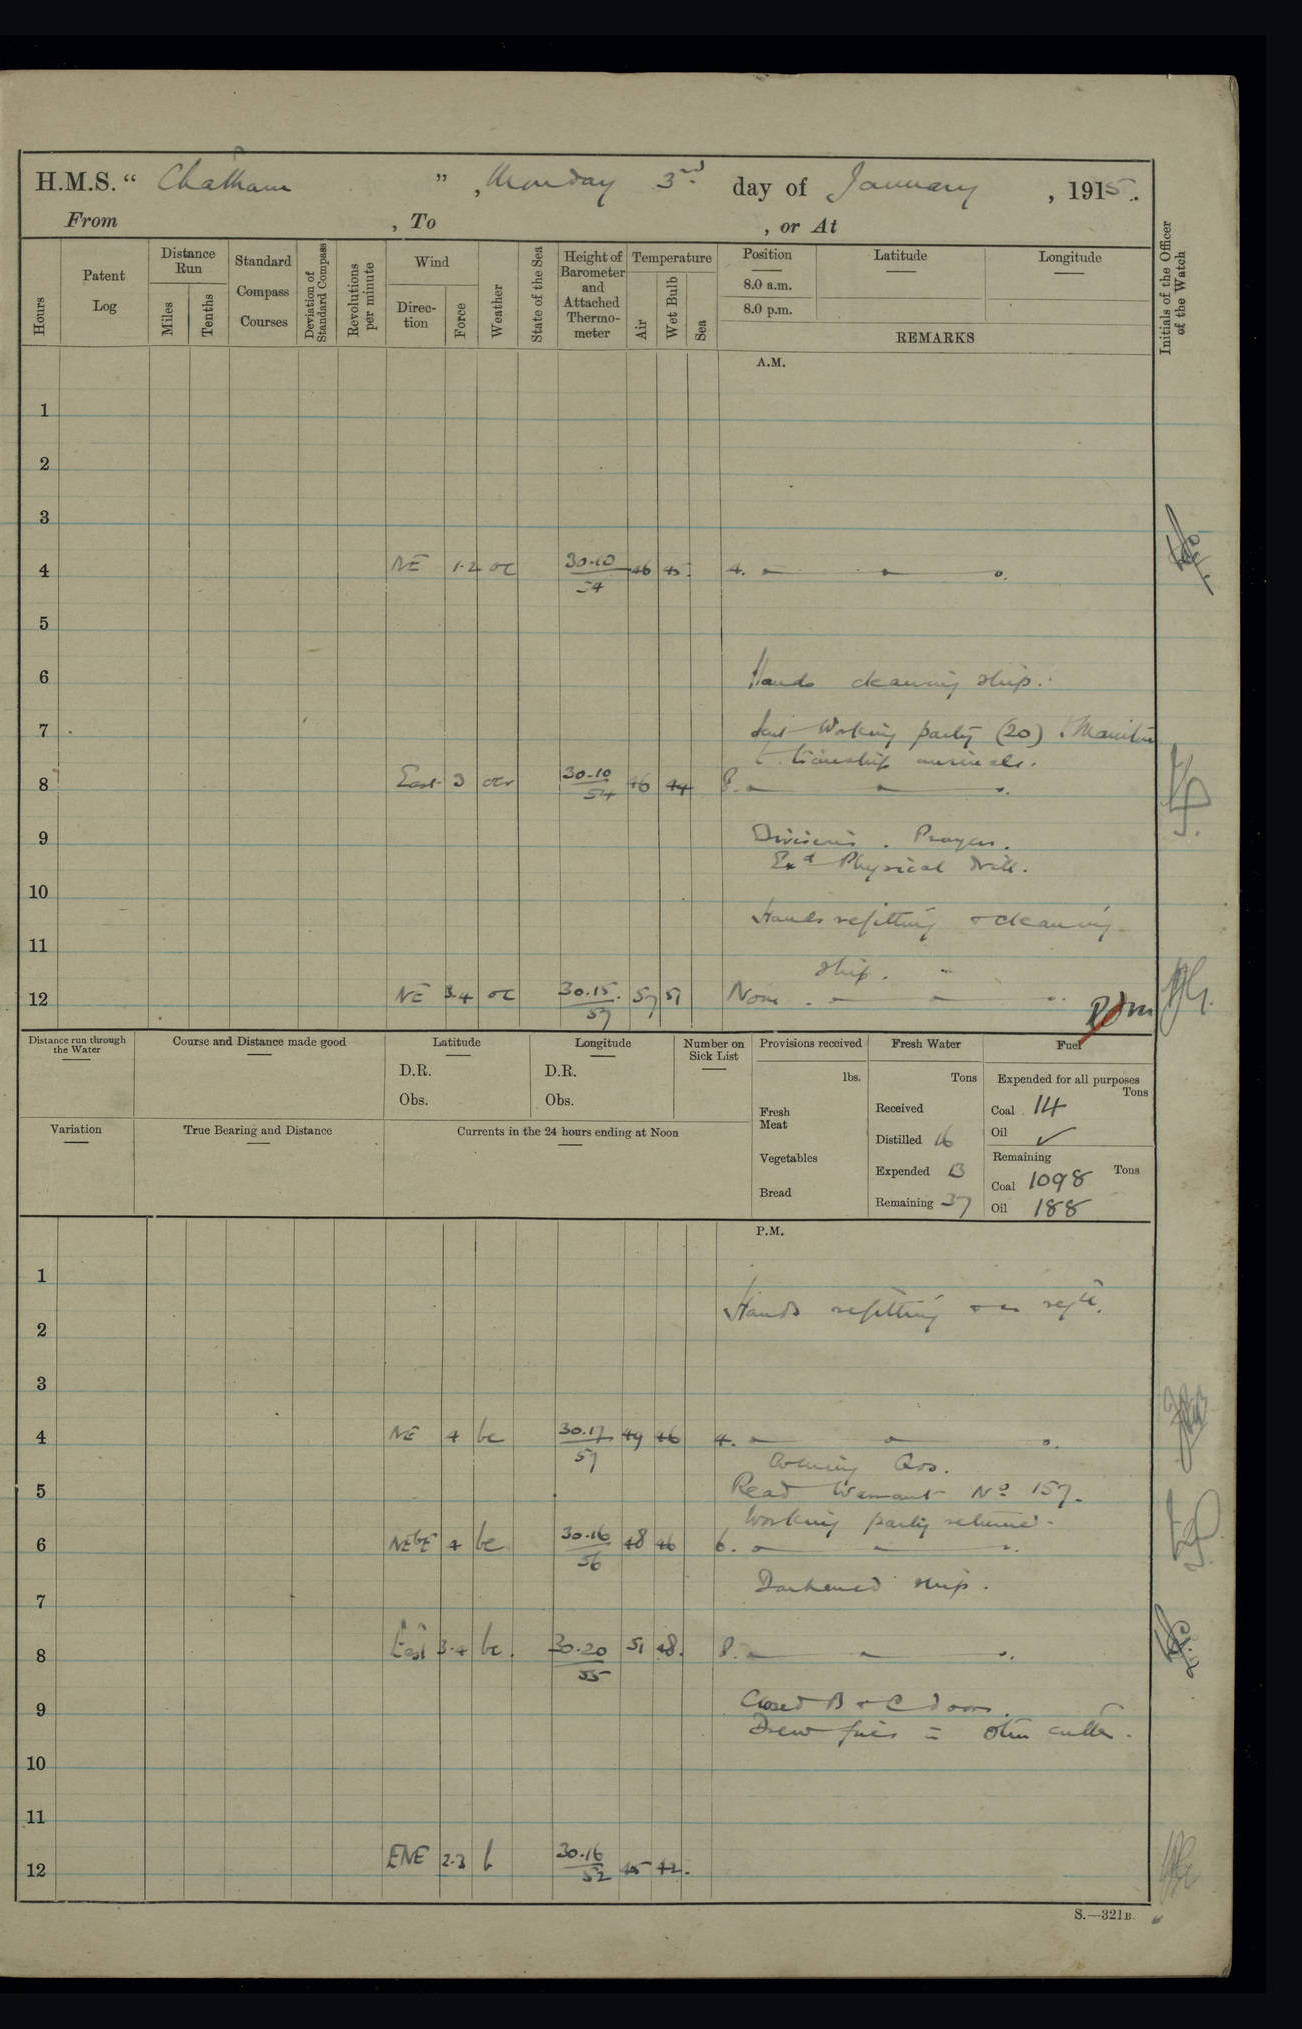 H.M.S. " Chatham ", Monday 3rd day of January , 1915.
From , To , or At
Hours
Patent Log
Distance Run
Miles
Tenths
Standard Compass Courses
Deviation of Standard Compass
Revolutions per minute
Wind
Direc-tion
Force
Weather
State of the Sea
Height of Barometer and Attached Thermo-meter
Temperature
Air
Wet Bulb
Sea
Position
8.0 a.m.
8.0 p.m.
Latitude
Longitude
REMARKS
Initials of the Officer of the Watch
A.M.
1
2
3
4 NE 1.2 oc 30.10 46 45 4.
54
5
6 Hands cleaning ship.
7 Working party (20)
8 East 3 ocr 30.10 46 44 8.
54
9 Divisions. Prayers.
Exd Physical Drill.
10
Hands refitting & cleaning
11
ship.
12 NE 3.4 oc 30.15 57 51 Noon.
57
Distance run through the Water
Course and Distance made good
Latitude
D.R.
Obs.
Longitude
D.R.
Obs.
Number on Sick List
Provisions received
lbs.
Fresh Meat
Vegetables
Bread
Fresh Water
Tons
Received
Distilled 16
Expended 13
Remaining 37
Fuel
Expended for all purposes
Tons
Coal 14
Oil ✓
Remaining
Tons
Coal 1098
Oil 188
Variation
True Bearing and Distance
Currents in the 24 hours ending at Noon
P.M.
1
Hands refitting & as reqd.
2
3
4 NE 4 bc 30.17 49 46 4.
57
Evening Qrs.
5 Read Warrant No 157.
Working party returned.
6 NEbE 4 bc 30.16 48 46 6.
56
Darkened ship.
7
8 East 3.4 bc. 30.20 51 48. 8.
55
Closed B & C doors.
9
Drew fires cutter.
10
11
12 ENE 2.3 b 30.16 45 42.
52
S.—321B.